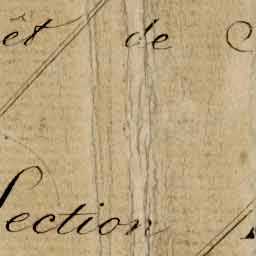 êt de
Section